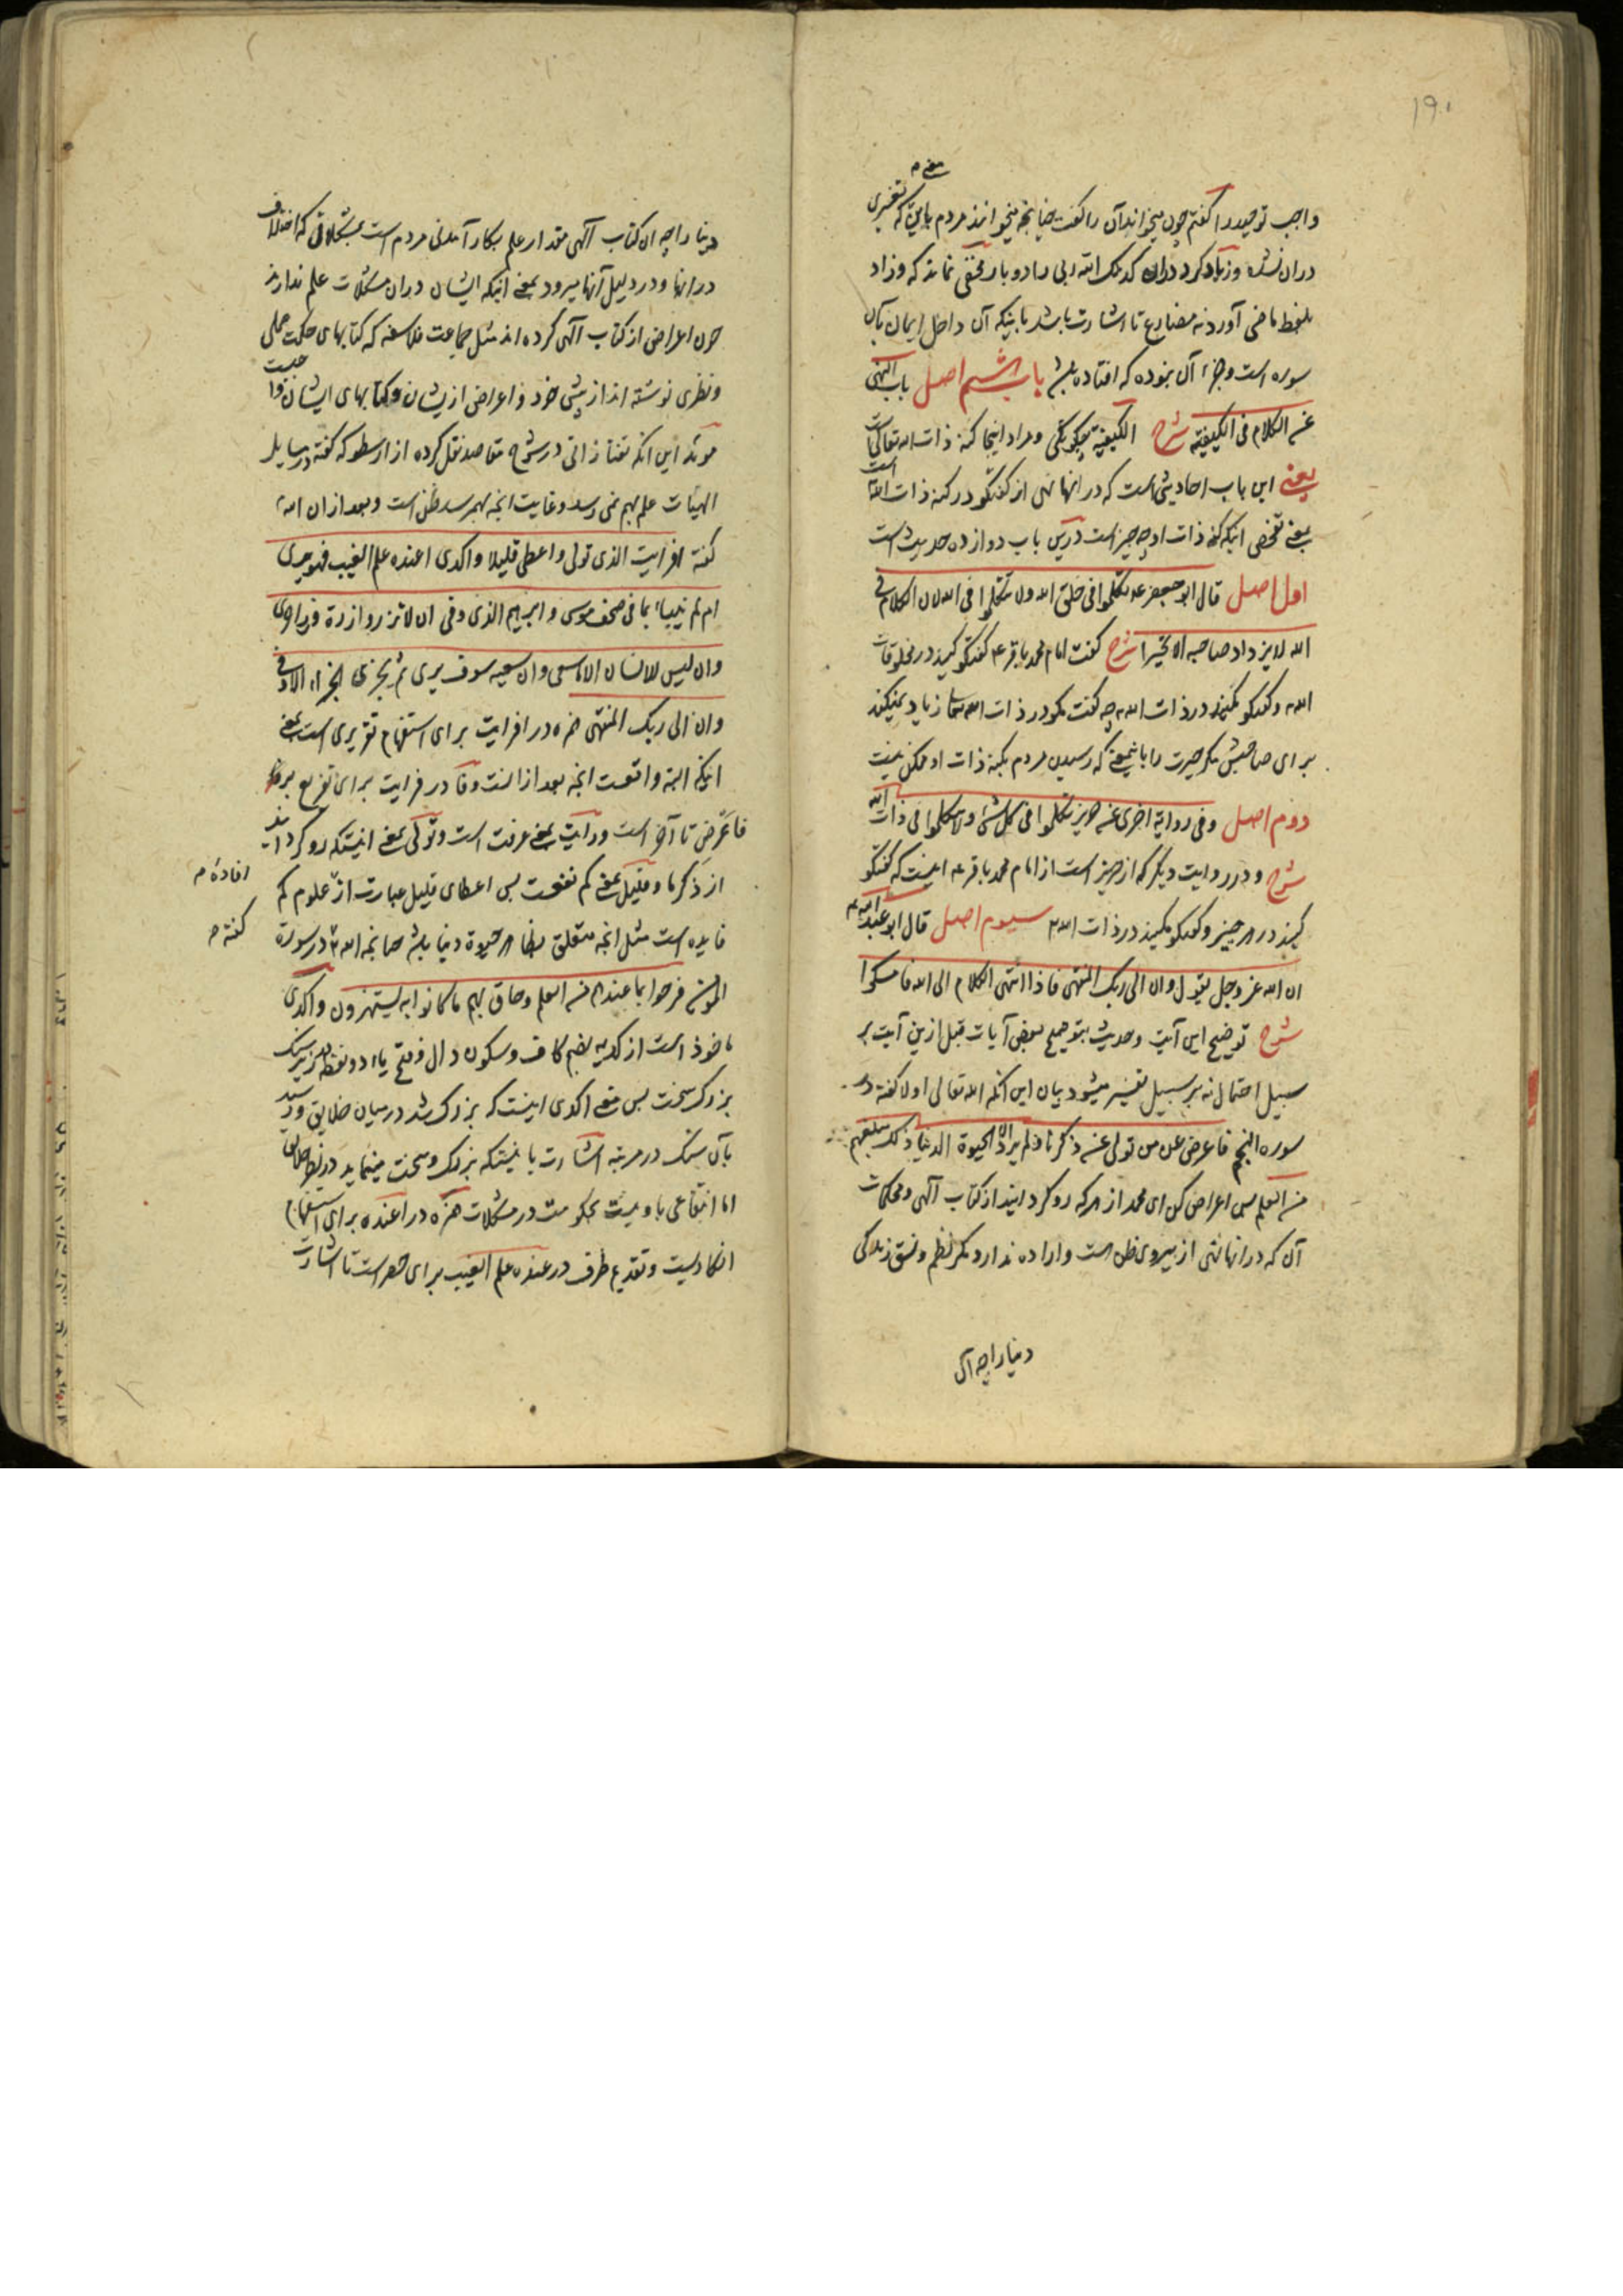 ۱۹۰
واجب توحید را گفتم چون میخواند آن را گفت چنانچه میخوانند مردم باین که تغییری
دران نشده و زیاد کرد دران کذلک الله ربی را دو بار مخفی نماند که و زاد
بلفظ ماضی آورد نه مضارع تا اشارت باشد باینکه آن داخل ایمان بآن
سوره است و جزء آن نبوده که افتاده باشد باب هشتم اصل باب النهی
عن الکلام فی الکیفیة شرح الکیفیة چگونگی و مراد اینجا کنه ذات الله تعالی است
یعنی این باب احادیثی است که در آنها نهی از گفتگو در کنه ذات الله است
یعنی تفحص اینکه کنه ذات او چه چیز است درین باب دوازده حدیث است
اول اصل قال ابو جعفر ع تکلموا فی خلق الله ولا تتکلموا فی الله لان الکلام فی
الله لا یزداد صاحبه الا تحیرا شرح گفت امام محمد باقر ع گفتگو کنید در مخلوقات
الله و گفتگو مکنید در ذات الله چه گفت گو در ذات الله زیاد نمیکند
برای صاحبش مگر حیرت را باین معنی که رسیدن مردم بکنه ذات او ممکن نیست
دوم اصل وفی روایة اخری عن حریز تکلموا فی کل شئ ولا تتکلموا فی ذات الله
شرح و در روایت دیگر که از حریز است از امام محمد باقر ع اینست که گفتگو
کنید در هر چیز و گفتگو مکنید در ذات الله سیوم اصل قال ابو عبد الله ع
ان الله عز وجل یقول وان الی ربک المنتهی فاذا انتهی الکلام الی الله فامسکوا
شرح توضیح این آیت و حدیث بتوضیح بعض آیات قبل ازین آیت بر
سبیل احتمال نه بر سبیل تفسیر میشود بیان این آنکه الله تعالی اولا گفته در
سوره النجم فاعرض عن من تولی عن ذکرنا ولم یرد الا الحیوة الدنیا ذلک مبلغهم
من العلم پس اعراض کن ای محمد از هر که رو گردانید از کتاب الهی و محکمات
آن که در آنها نهی از پیروی ظن است و اراده ندارد مگر نظم و نسق زندگی
دنیا را چه آن
دنیا را چه ان کتاب الهی مقدار علم بکار آمدنی مردم است بمشکلاتی که اختلاف
در آنها و در دلیل آنها میرود یعنی اینکه ایشان دران مشکلات علم ندارند
چون اعراض از کتاب الهی کرده اند مثل جماعت فلاسفه که کتابهای حکمت عملی
و نظری نوشته اند از پیش خود و اعراض از یشان و کتابهای ایشان واجبست
موید این آنکه تفتازانی در شرح مقاصد نقل کرده از ارسطو که گفته در مسایل
الهیات علم بهم نمی رسد و غایت انچه بهم رسد ظن است و بعد ازان الله
گفته افرایت الذی تولی واعطی قلیلا واکدی اعنده علم الغیب فهو یری
ام لم ینبأ بما فی صحف موسی وابرهیم الذی وفی ان لا تزر وازرة وزر اخری
وان لیس للانسان الا ما سعی وان سعیه سوف یری ثم یجزی الجزاء الاوفی
وان الی ربک المنتهی همزه در افرایت برای استفهام تقریری است یعنی
اینکه البته واقعست انچه بعد از انست و فا در فرایت برای تفریع بر
فاعرض تا آخر است و رایت یعنی عرفت است و تولی یعنی اینست که رو گردانید
از ذکر ما و قلیل یعنی کم نفعست پس اعطای قلیل عبارت از علوم کم
فایده است مثل انچه متعلق بظاهر حیوة دنیا باشد چنانچه الله در سورة
المومن فرحوا بما عندهم من العلم وحاق بهم ما کانوا به یستهزون و اکدی
ماخوذ است از کدیه بضم کاف و سکون دال و فتح یاء دو نقطه در زیر سنک
بزرگ سخت پس معنی اکدی اینست که بزرگ شد در میان خلایق و رسید
بآن سنک در مرتبه اشارت باینست که بزرگ و سخت مینماید در نظر خلایق
اما انتفاعی باو نیست بحکومت در مشکلات همزه در اعنده برای استفهام
انکاریست و تقدیم ظرف در عنده علم الغیب برای حصر است تا اشارت
افاده م
گفته م